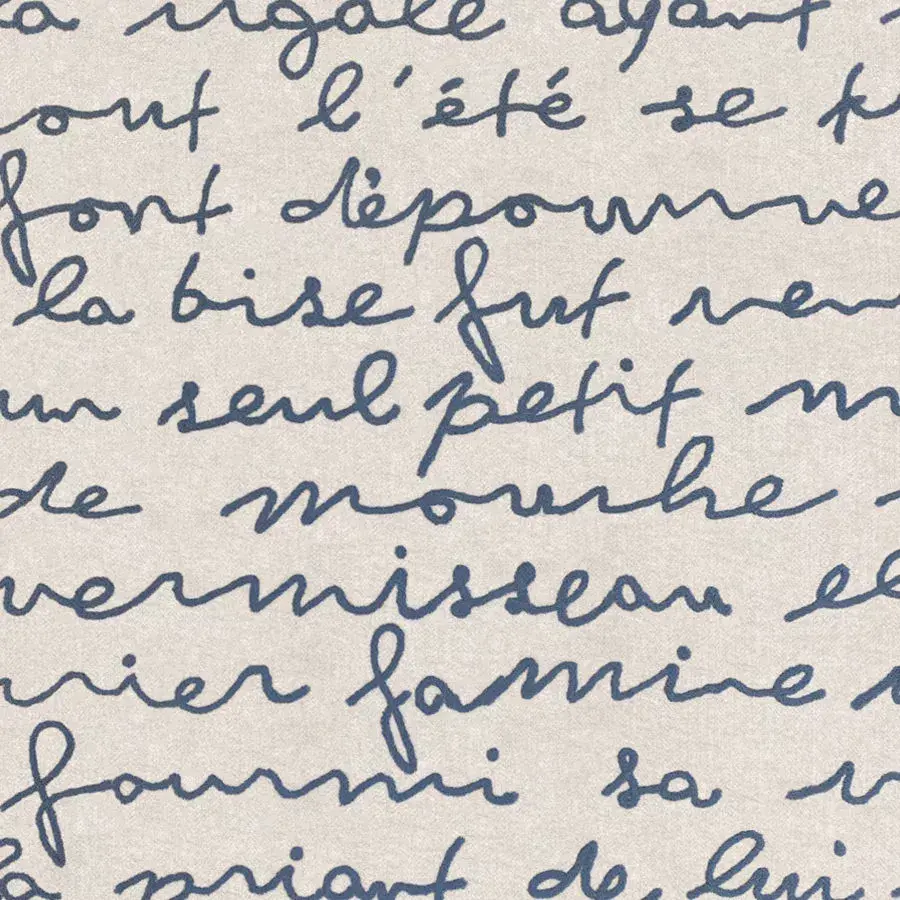 la cigale ayant
tout l'été se
font dépourvue
la bise fut
un seul petit
de mouche
vermisseau
crier famine
fourmi sa
la priant de lui